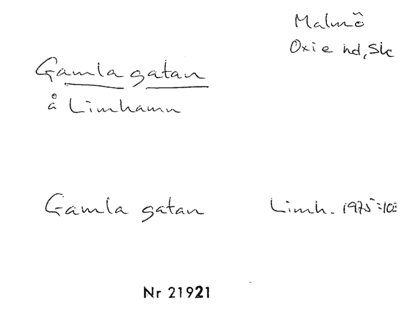 Malmö
Oxie hd, Sk
Gamla gatan
å Limhamn
Gamla gatan Limh. 1975:
Nr 21921